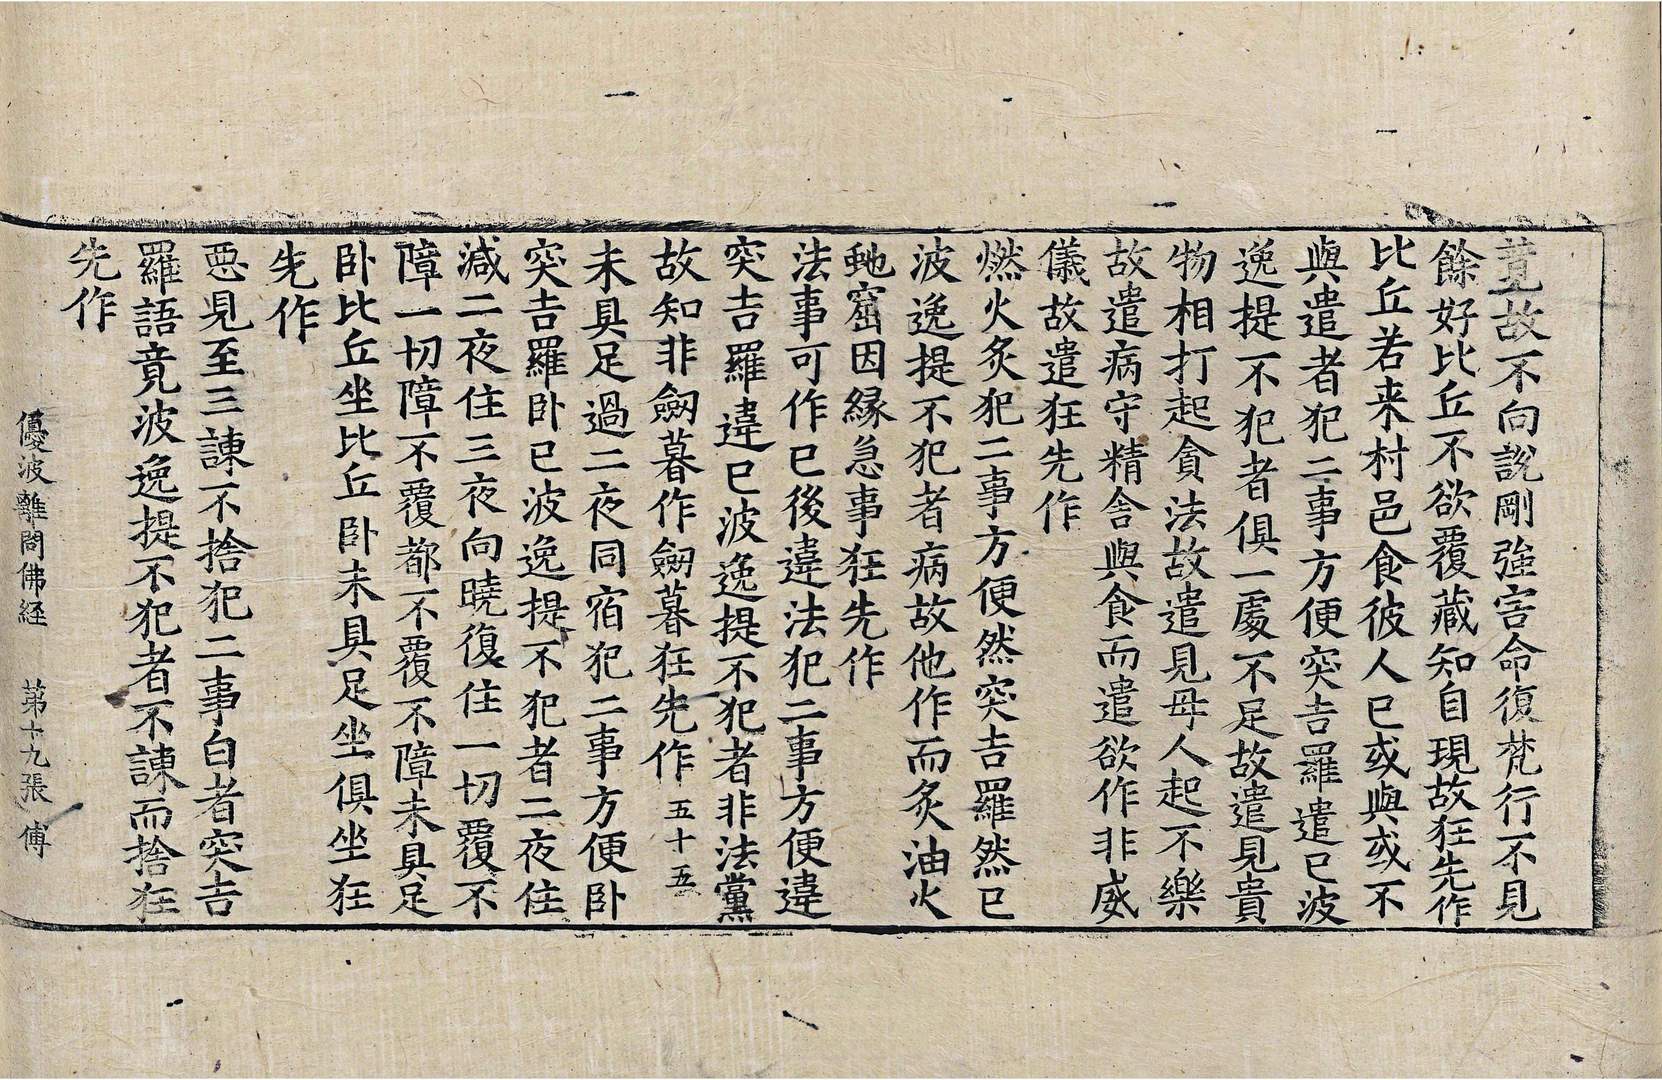 竟故不向說剛強害命復梵行不見
餘好比丘不欲覆藏知自現故狂先作
比丘若来村邑食彼人已或與或不
與遣者犯二事方便突吉羅遣已波
逸提不犯者俱一處不足故遣見貴
物相打起貪法故遣見母人起不樂
故遣病守精舍與食而遣欲作非威
儀故遣狂先作
燃火炙犯二事方便然突吉羅然已
波逸提不犯者病故他作而炙油火
虵窟因緣急事狂先作
法事可作已後違法犯二事方便違
突吉羅違已波逸提不犯者非法黨
故知非劒暮作劒暮狂先作 五十五
未具足過二夜同宿犯二事方便卧
突吉羅卧已波逸提不犯者二夜住
減二夜住三夜向曉復住一切覆不
障一切障不覆都不覆不障未具足
卧比丘坐比丘卧未具足坐俱坐狂
先作
惡見至三諫不捨犯二事白者突吉
羅語竟波逸提不犯者不諫而捨狂
先作
優波離問佛経 第十九張 傅